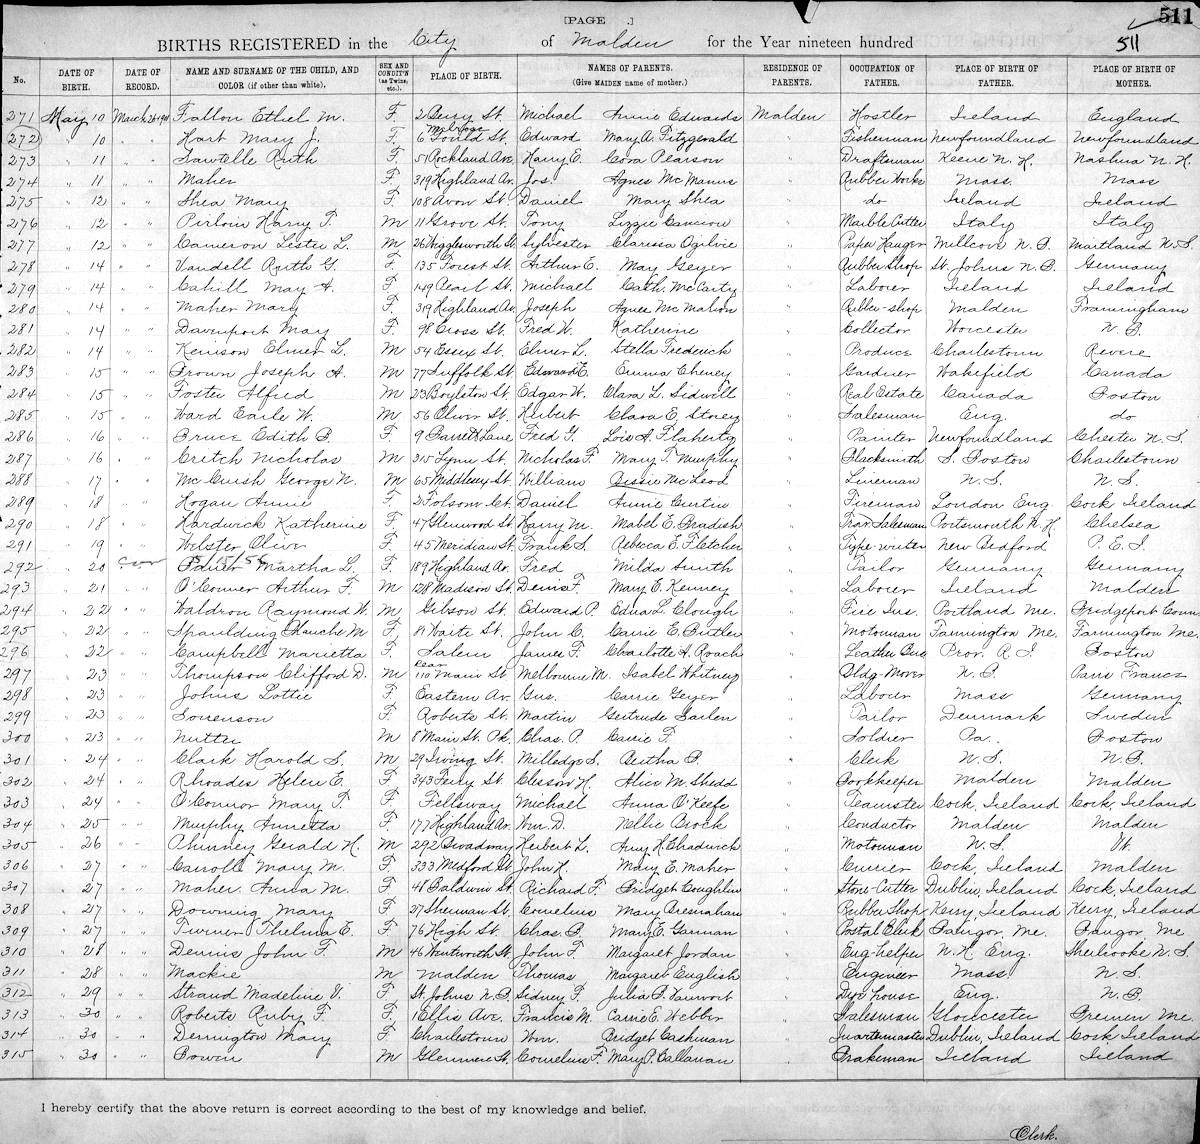 [PAGE .] 511
BIRTHS REGISTERED in the City of Malden for the Year nineteen hundred 511
No. DATE OF BIRTH. DATE OF RECORD. NAME AND SURNAME OF THE CHILD, AND COLOR (if other than white). SEX AND CONDIT'N (as Twins, etc.). PLACE OF BIRTH. NAMES OF PARENTS. (Give MAIDEN name of mother.) RESIDENCE OF PARENTS. OCCUPATION OF FATHER. PLACE OF BIRTH OF FATHER. PLACE OF BIRTH OF MOTHER.
271 May 10 Fallon Ethel M. F. 2 Berry St. Michael Annie Edwards Malden Hostler Ireland England
272 " 10 " " Hart Mary J. F. 6 Gould St. Melrose Edward Mary A. Fitzgerald " Fisherman Newfoundland Newfoundland
273 " 11 " " Sawtelle Ruth F. 51 Rockland Ave. Harry E. Cora Pearson " Draftsman Keene N. H. Nashua N. H.
274 " 11 " " Maher F. 319 Highland Av. Jos. Agnes McManus " Rubber Works Mass. Mass
275 " 12 " " Shea Mary F. 108 Avon St. Daniel Mary Shea " do Ireland Ireland
276 " 12 " " Harry T. M 11 Grove St. Tony Lizzie " Marble Cutter Italy Italy
277 " 12 " " Cameron Lester L. M 26 Wigglesworth St. Sylvester Clarissa Ogilvie " Paper Hanger Millcove N. B. Maitland N. S.
278 " 14 " " Vandell Ruth G. F. 135 Forest St. Arthur E. May Geyer " Rubber Shop St. Johns N. B. Germany
279 " 14 " " Cahill May A. F. 149 Pearl St. Michael Cath. McCarty " Laborer Ireland Ireland
280 " 14 " " Maher Mary F. 319 Highland Av. Joseph Agnes McMahon " Rubber-shop Malden Framingham
281 " 14 " " Davenport May F. 98 Cross St. Fred W. Katherine " Collector Worcester N. B.
282 " 14 " " Kenison Elmer L. M 54 Essex St. Elmer L. Stella Frederick " Produce Charlestown Revere
283 " 15 " " Brown Joseph A. M 77 Suffolk St. Edward E. Emma Cheney " Gardner Wakefield Canada
284 " 15 " " Foster Alfred M 23 Boylston St. Edgar W. Clara L. Sidwell " Real Estate Canada Boston
285 " 15 " " Ward Earle W. M 56 Oliver St. Herbert Clara E. Storey " Salesman Eng. do
286 " 16 " " Bruce Edith B. F. 9 Barrett Lane Fred G. Lois A. Flaherty " Painter Newfoundland Chester N. S.
287 " 16 " " Critch Nicholas M 315 Lynn St. Nicholas F. Mary T. Murphy " Blacksmith S. Boston Charlestown
288 " 17 " " McCuish George N. M 65 Middlesex St. William Bessie McLeod " Lineman N. S. N. S.
289 " 18 " " Hogan Annie F. 2 Folsom Ct. Daniel Annie Curtin " Fireman London Eng Cork Ireland
290 " 18 " " Hardwick Katherine F. 47 Glenwood St. Harry M. Mabel E. Bradish " Trav. Salesman Portsmouth N. H. Chelsea
291 " 19 " " Webster Oliver F. 45 Meridian St. Frank S. Rebecca E. Fletcher " Type-writer New Bedford P. E. I.
292 " 20 " Cor Martha L. F. 189 Highland Av. Fred Milda Smith " Tailor Germany Germany
293 " 21 " " O'Connor Arthur F. M 128 Madison St. Denis F. Mary E. Kenney " Laborer Ireland Malden
294 " 22 " " Waldron Raymond W. M Gibson St. Edward P. Edna L. Clough " Fire Ins. Portland Me. Bridgeport Conn.
295 " 22 " " Spaulding Blanche M F. 81 Waite St. John C. Carrie E. Butler " Motorman Farmington Me. Farmington Me.
296 " 22 " " Campbell Marietta F. Salem James F. Charlotte A. Roach " Leather Bus Prov. R. I. Boston
297 " 23 " " Thompson Clifford D. M rear 110 Main St Melbourne M. Isabel Whitney " Bldg-Mover N. B. Paris France
298 " 23 " " Johns Lottie F. Eastern Av. Gus. Carrie Geyer " Labour Mass Germany
299 " 23 " " Sorenson F. Roberts St. Martin Gertrude " Tailor Denmark Sweden
300 " 23 " " Nutter M 8 Main St. Pk. Chas. P. Carrie F. " Soldier Pa. Boston
301 " 24 " " Clark Harold S. M 29 Irving St. Milledge S. Bertha B. " Clerk N. S. N. S.
302 " 24 " " Rhoades Helen E. F. 343 Ferry St. Clesson H. Alice M. Shedd " Bookkeeper Malden Malden
303 " 24 " " O'Connor Mary T. F. Fellsway Michael Anna O'Keefe " Teamster Cork, Ireland Cork, Ireland
304 " 25 " " Murphy Annetta F. 177 Highland Av. Wm. D. Nellie Brock " Conductor Malden Malden
305 " 26 " " Phinney Gerald H. M 292 Broadway Herbert L. Amy H. Chadwick " Motorman N. S. Vt.
306 " 27 " " Carroll Mary M. F. 333 Medford St John Mary E. Maher " Currier Cork, Ireland Malden
307 " 27 " " Maher Anna M. F. 41 Baldwin St Richard F. Bridget Coughlin " Stone-Cutter Dublin, Ireland Cork, Ireland
308 " 27 " " Downing Mary F. 27 Sherman St. Cornelius Mary Bresnahan " Rubber Shop Kerry, Ireland Kerry, Ireland
309 " 27 " " Turner Thelma E. F. 76 High St. Chas. B. Mary E. Garman " Postal Clerk Bangor, Me. Bangor Me
310 " 28 " " Dennis John F. M 46 Wentworth St. John F. Margaret Jordan " Eng-helper N. H. Eng. Sherbrooke N. S.
311 " 28 " " Mackie M Malden Thomas Margaret English " Engineer Mass N. S.
312 " 29 " " Strand Madeline V. F. St. Johns N. B. Sidney F. Julia B. " Dye house Eng. N. B.
313 " 30 " " Roberts Ruby F. F. 1 Ellis Ave. Francis M. Carrie E. Webber " Salesman Gloucester Bremen Me.
314 " 30 " " Derrington Mary F. Charlestown Wm. Bridget Cashman " Quartermaster Dublin, Ireland Cork Ireland
315 " 30 " " Bowen M Glenmere St. Cornelius F. Mary P. Callanan " Brakeman Ireland Ireland
I hereby certify that the above return is correct according to the best of my knowledge and belief.
Clerk.